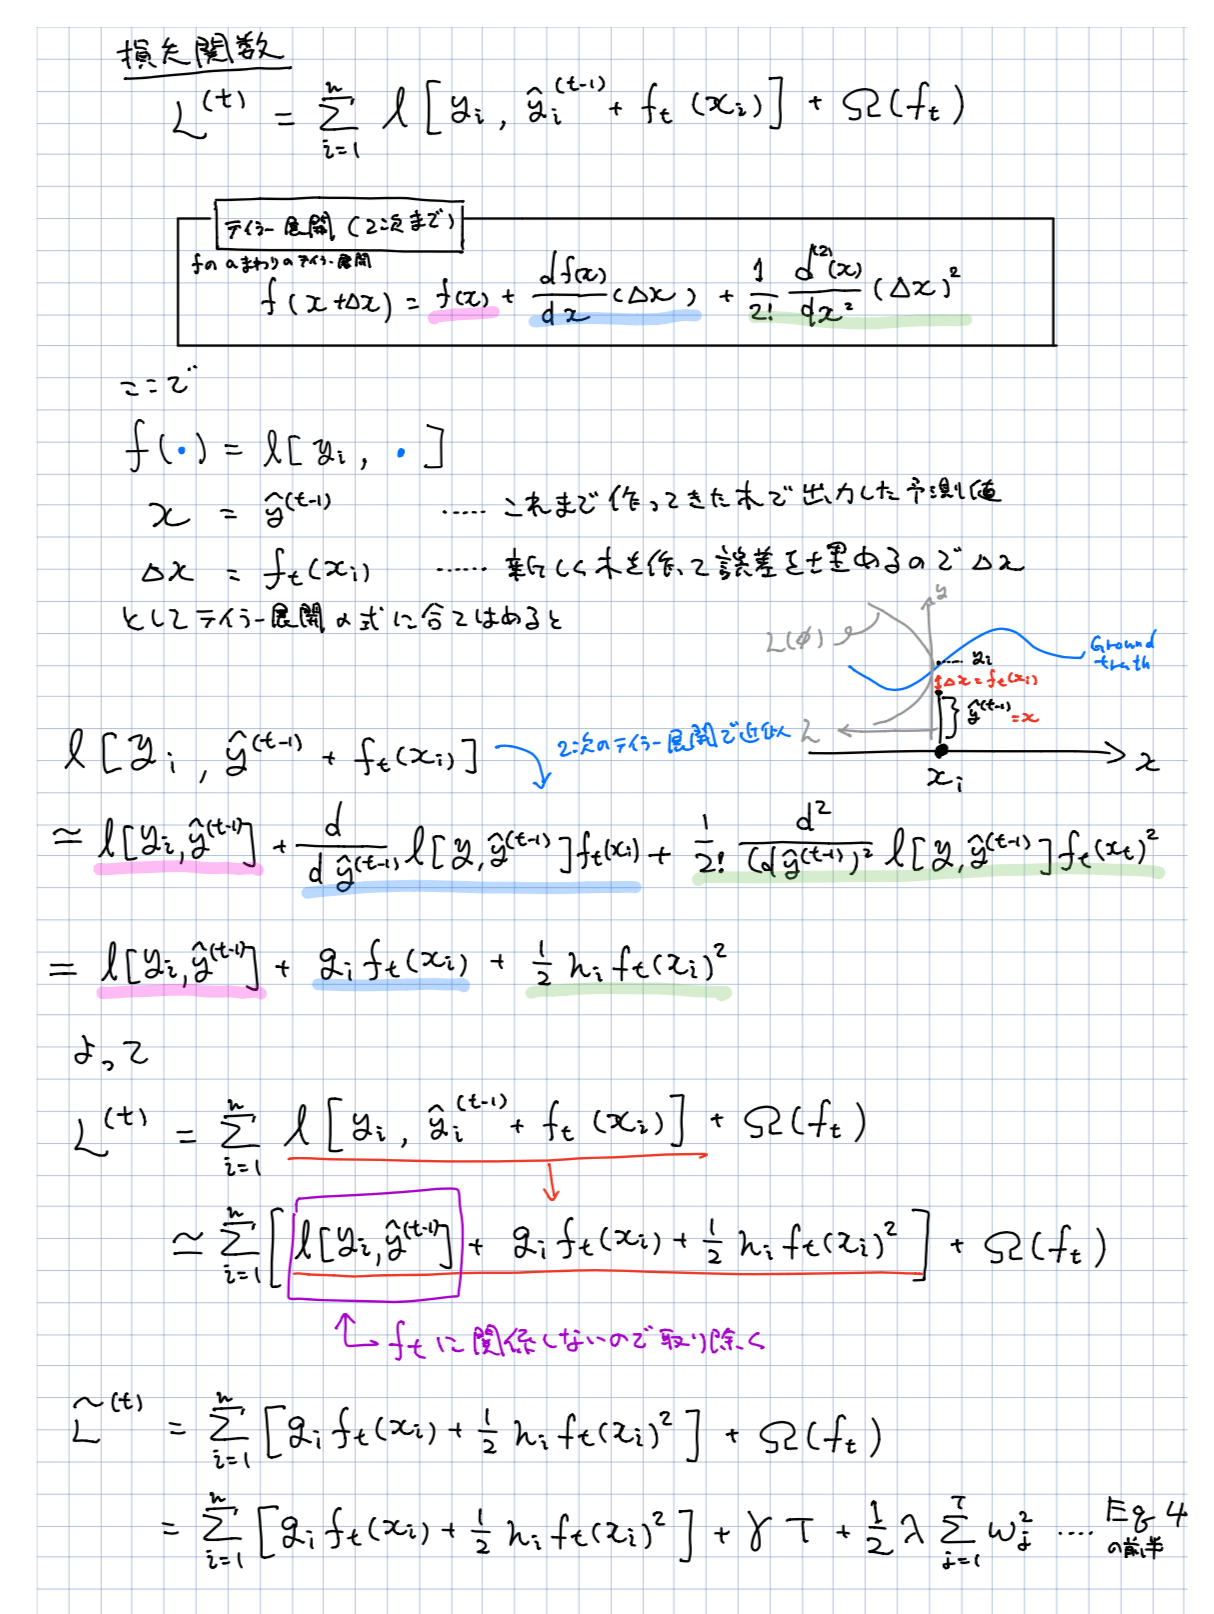 損失関数
L^(t) = Σ_{i=1}^{n} l[y_i, ŷ_i^(t-1) + f_t(x_i)] + Ω(f_t)
テイラー展開(2次まで)
fのaまわりのテイラー展開
f(x+Δx) = f(x) + df(x)/dx (Δx) + 1/2! d^(2)(x)/dx² (Δx)²
ここで
f(・) = l[y_i, ・]
x = ŷ^(t-1) ..... これまで作ってきた木で出力した予測値
Δx = f_t(x_i) ..... 新しく木を作って誤差を埋めるので Δx
としてテイラー展開の式に合てはめると
y
L(φ)
y_i
Ground truth
Δx = f_t(x_i)
ŷ^(t-1) = x
L
x_i
x
l[y_i, ŷ^(t-1) + f_t(x_i)] 2次のテイラー展開で近似
≃ l[y_i, ŷ^(t-1)] + d/dŷ^(t-1) l[y, ŷ^(t-1)] f_t(x_i) + 1/2! d²/(dŷ^(t-1))² l[y, ŷ^(t-1)] f_t(x_t)²
= l[y_i, ŷ^(t-1)] + g_i f_t(x_i) + 1/2 h_i f_t(x_i)²
よって
L^(t) = Σ_{i=1}^{n} l[y_i, ŷ_i^(t-1) + f_t(x_i)] + Ω(f_t)
≃ Σ_{i=1}^{n} [l[y_i, ŷ^(t-1)] + g_i f_t(x_i) + 1/2 h_i f_t(x_i)²] + Ω(f_t)
f_t に関係しないので取り除く
L̃^(t) = Σ_{i=1}^{n} [g_i f_t(x_i) + 1/2 h_i f_t(x_i)²] + Ω(f_t)
= Σ_{i=1}^{n} [g_i f_t(x_i) + 1/2 h_i f_t(x_i)²] + γT + 1/2 λ Σ_{j=1}^{T} w_j² .... Eq 4
の前半